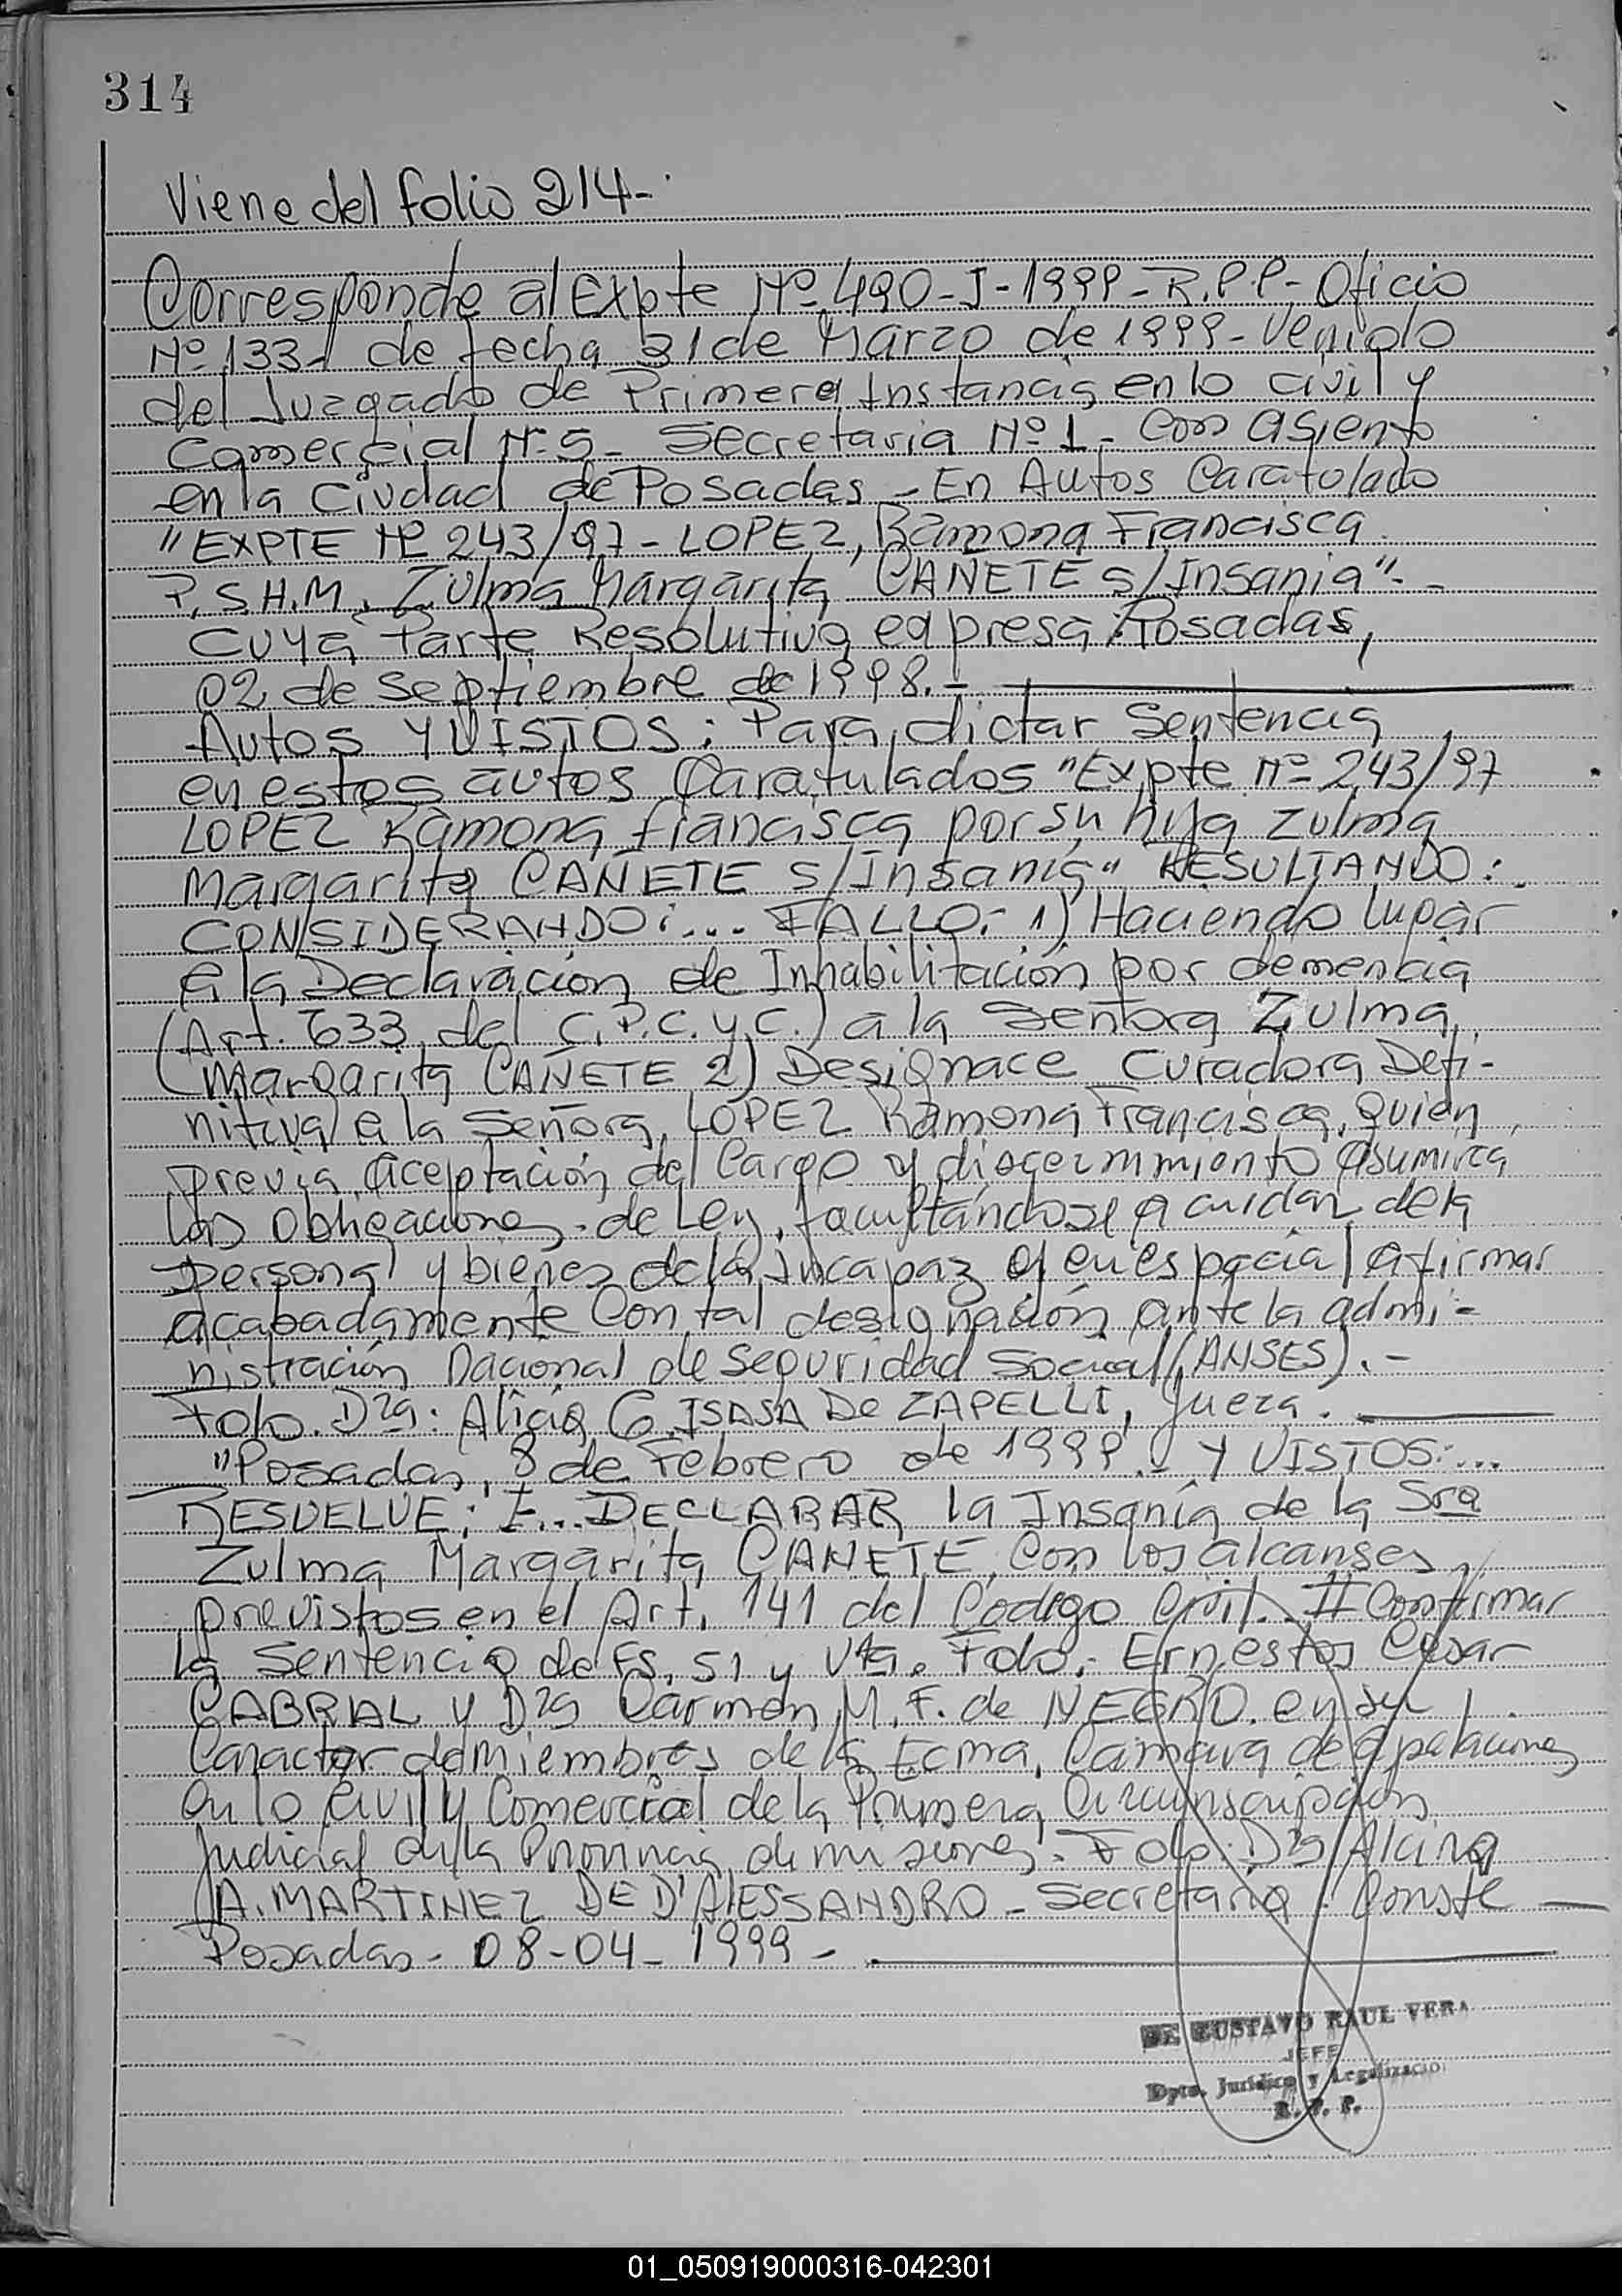 314
Viene del folio 214-
Corresponde al Expte Nº 490-J-1999-R.P.P-Oficio
Nº 133- de fecha 31 de Marzo de 1999-Venido
del Juzgado de Primera Instancia en lo civil y
Comercial Nº 5- Secretaria Nº 1- Con asiento
en la Ciudad de Posadas - En Autos Caratolado
"EXPTE Nº 243/97-LOPEZ, Ramona Francisca
P.S.H.M. Zulma Margarita CAÑETE s/Insania"-
Cuya Parte Resolutiva expresa: Posadas,
02 de Septiembre de 1998.-
Autos Y VISTOS: Para dictar Sentencia
en estos autos Caratulados "Expte Nº 243/97
LOPEZ Ramona francisca por su hija Zulma
Margarita CAÑETE s/Insania" RESULTANDO:
CONSIDERANDO:... FALLO:- 1) Haciendo lugar
a la Declaración de Inhabilitación por demencia
(Art. 633 del C.P.C.y.C.) a la Señora Zulma
Margarita CAÑETE 2) Designace Curadora Defi-
nitiva a la Señora LOPEZ Ramona Francisca, quien
previa aceptación del Cargo y discernimiento asumirá
las obligaciones de Ley, facultándose a cuidar de la
persona y bienes de la Incapaz y en especial a firmar
acabadamente Con tal designación ante la admi-
nistración Nacional de Seguridad Social (ANSES).-
Fdo. Dra: Alicia C. ISASA De ZAPELLI, Jueza.
"Posadas, 8 de Febrero de 1999.- Y VISTOS:...
RESUELVE: I... DECLARAR la Insania de la Sra
Zulma Margarita CAÑETE, Con los alcanses
previstos en el Art. 141 del Código Civil. II Confirmar
la Sentencia de Fs. 51 y Vta. Fdo:- Ernestos Cesar
CABRAL y Dra Carmen M. F. de NEGRO. en su
Caracter de Miembros de la Ecma. Cámara de apelaciones
en lo Civil y Comercial de la Primera Circunscripción
Judicial de la Provincia de misiones. Fdo: Dra Alcira
A. MARTINEZ DE D'ALESSANDRO - Secretaria. Conste
Posadas- 08-04-1999-
GUSTAVO RAUL VERA
JEFE
Dpto. Jurídico y Legalización
R. P. P.
01_050919000316-042301